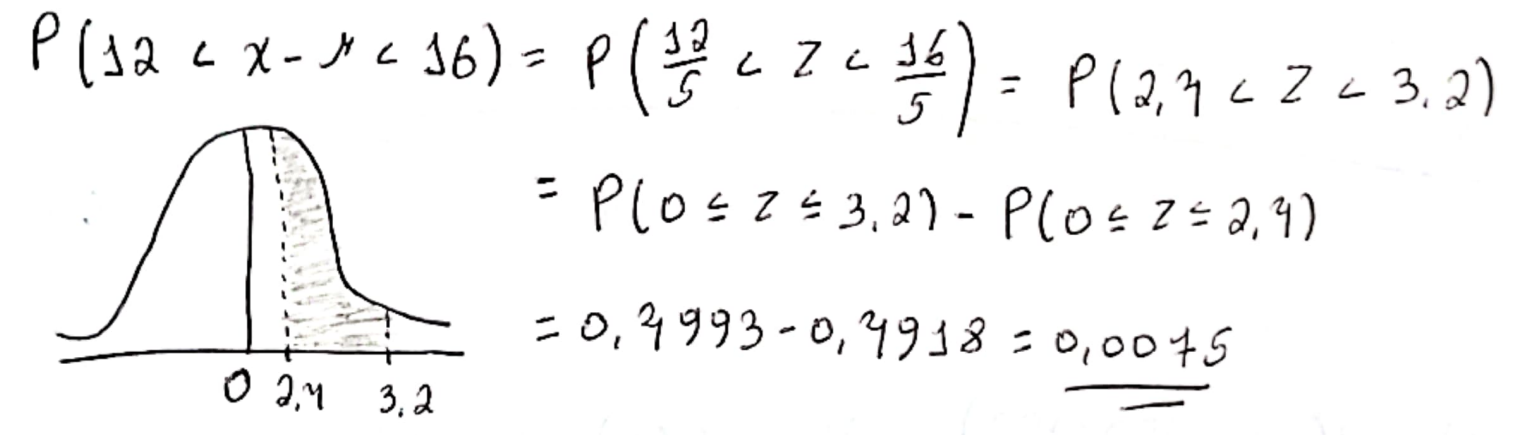 P(12 < x - μ < 16) = P(12/5 < Z < 16/5) = P(2,4 < Z < 3,2)
= P(0 ≤ Z ≤ 3,2) - P(0 ≤ Z ≤ 2,4)
= 0,4993 - 0,4918 = 0,0075
0 2,4 3,2